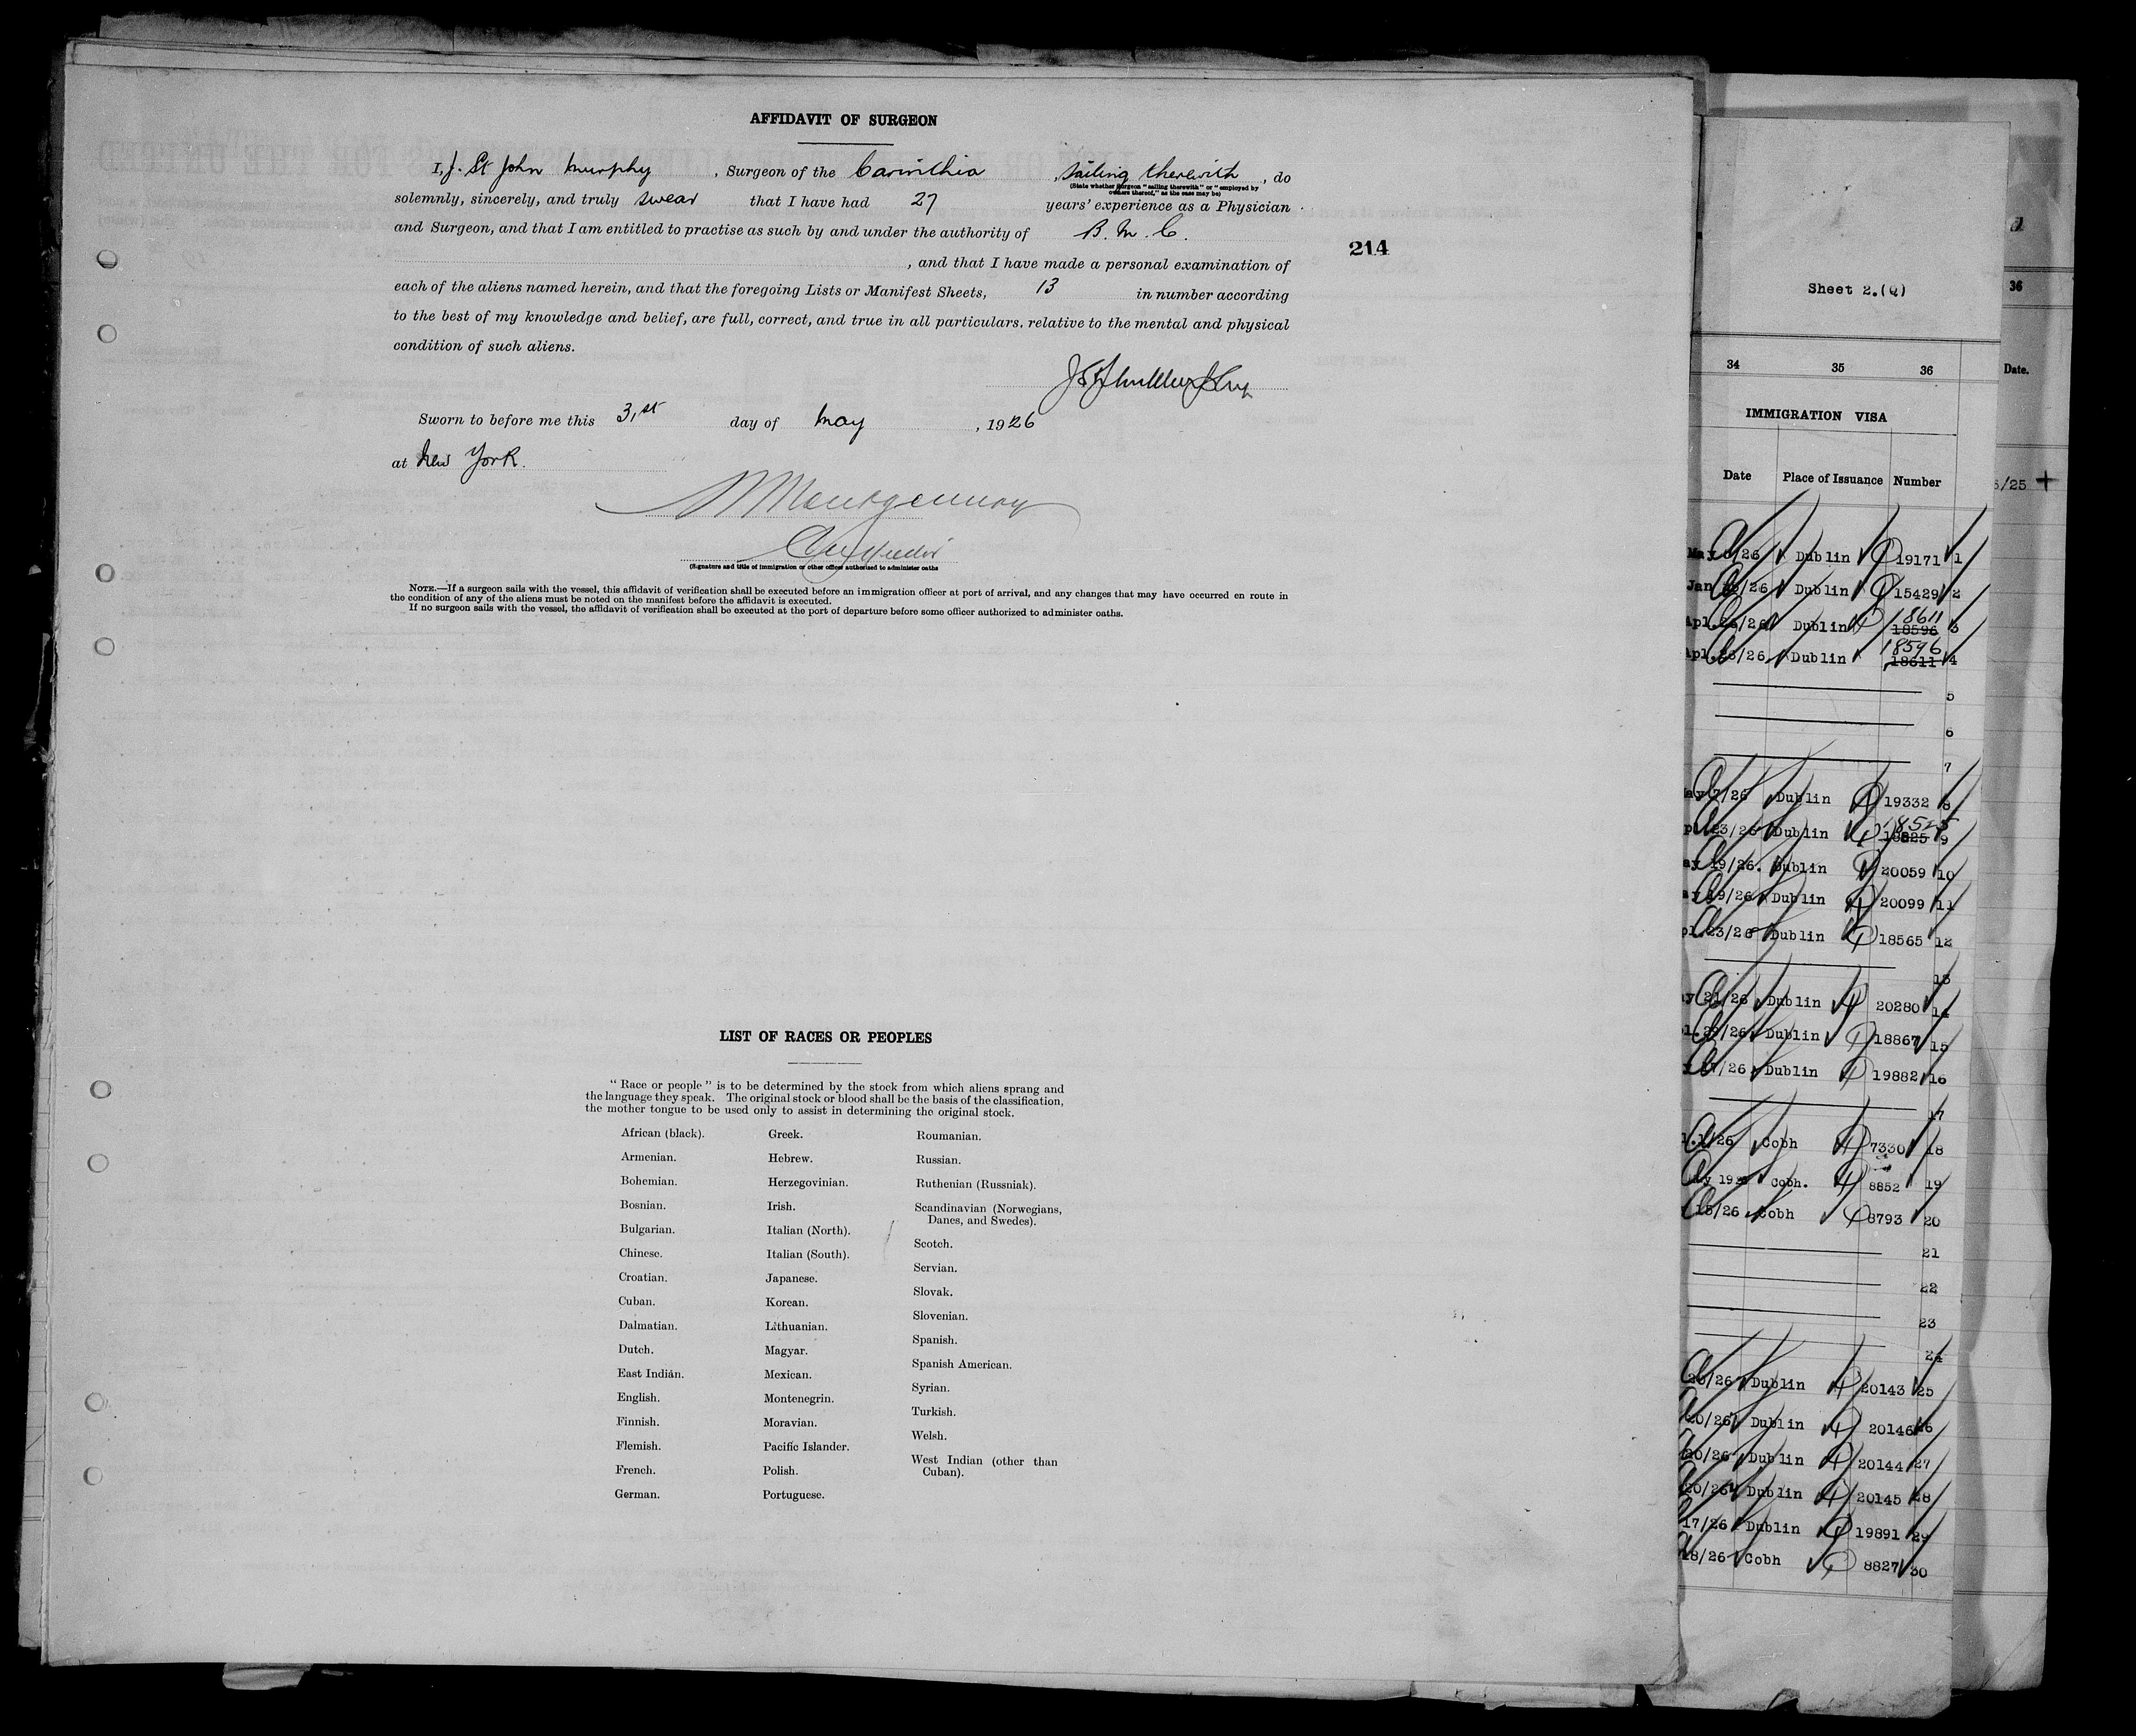 AFFIDAVIT OF SURGEON
I, J. St John Murphy , Surgeon of the Carinthia , sailing therewith , do
(State whether Surgeon "sailing therewith" or "employed by
owners thereof," as the case may be)
solemnly, sincerely, and truly swear that I have had 27 years' experience as a Physician
and Surgeon, and that I am entitled to practise as such by and under the authority of B. M. C.
214
, and that I have made a personal examination of
each of the aliens named herein, and that the foregoing Lists or Manifest Sheets, 13 in number according
to the best of my knowledge and belief, are full, correct, and true in all particulars. relative to the mental and physical
condition of such aliens.
J St John Murphy
Sworn to before me this 31st day of May , 1926
at New York.
Montgomery
(Signature and title of immigration or other officer authorised to administer oaths
NOTE.—If a surgeon sails with the vessel, this affidavit of verification shall be executed before an immigration officer at port of arrival, and any changes that may have occurred en route in
the condition of any of the aliens must be noted on the manifest before the affidavit is executed.
If no surgeon sails with the vessel, the affidavit of verification shall be executed at the port of departure before some officer authorized to administer oaths.
LIST OF RACES OR PEOPLES
"Race or people" is to be determined by the stock from which aliens sprang and
the language they speak. The original stock or blood shall be the basis of the classification,
the mother tongue to be used only to assist in determining the original stock.
African (black).
Armenian.
Bohemian.
Bosnian.
Bulgarian.
Chinese.
Croatian.
Cuban.
Dalmatian.
Dutch.
East Indian.
English.
Finnish.
Flemish.
French.
German.
Greek.
Hebrew.
Herzegovinian.
Irish.
Italian (North).
Italian (South).
Japanese.
Korean.
Lithuanian.
Magyar.
Mexican.
Montenegrin.
Moravian.
Pacific Islander.
Polish.
Portuguese.
Roumanian.
Russian.
Ruthenian (Russniak).
Scandinavian (Norwegians,
Danes, and Swedes).
Scotch.
Servian.
Slovak.
Slovenian.
Spanish.
Spanish American.
Syrian.
Turkish.
Welsh.
West Indian (other than
Cuban).
Sheet 2.(Q)
34 35 36
IMMIGRATION VISA
Date Place of Issuance Number
May /26 Dublin 19171 1
Jan /26 Dublin 15429 2
18611
Apl. /26 Dublin 18596 3
18596
Apl.23/26 Dublin 18611 4
5
6
7
ay 7/26 Dublin 19332 8
18525
pl 23/26 Dublin 18825 9
ay 19/26. Dublin 20059 10
ay 19/26 Dublin 20099 11
pl.23/26 Dublin 18565 12
13
ay 21/26 Dublin 20280 14
l.28/26 Dublin 18867 15
17/26 Dublin 19882 16
17
1/26 Cobh 7330 18
y 19 Cobh. 8852 19
15/26 Cobh 8793 20
21
22
23
24
20/26 Dublin 20143 25
20/26 Dublin 20146 26
20/26 Dublin 20144 27
20/26 Dublin 20145 28
17/26 Dublin 19891 29
18/26 Cobh 8827 30
36
Date.
/25 +